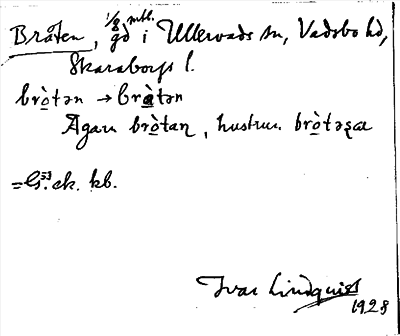 Bråten, 1/8 mtl. gd i Ullervads sn, Vadsbo hd,
Skaraborgs l.
brò̲tən → brà̲tən
Ägaren brò̲tan, hustrun brò̲təʂa
= G. ek. kb.
Ivar Lindquist
1928